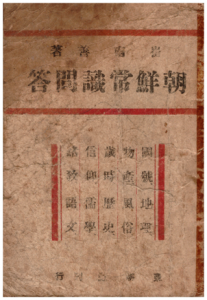 崔南善著
朝鮮常識問答
國號地理
物産風俗
歲時歷史
信仰儒學
諸敎語文